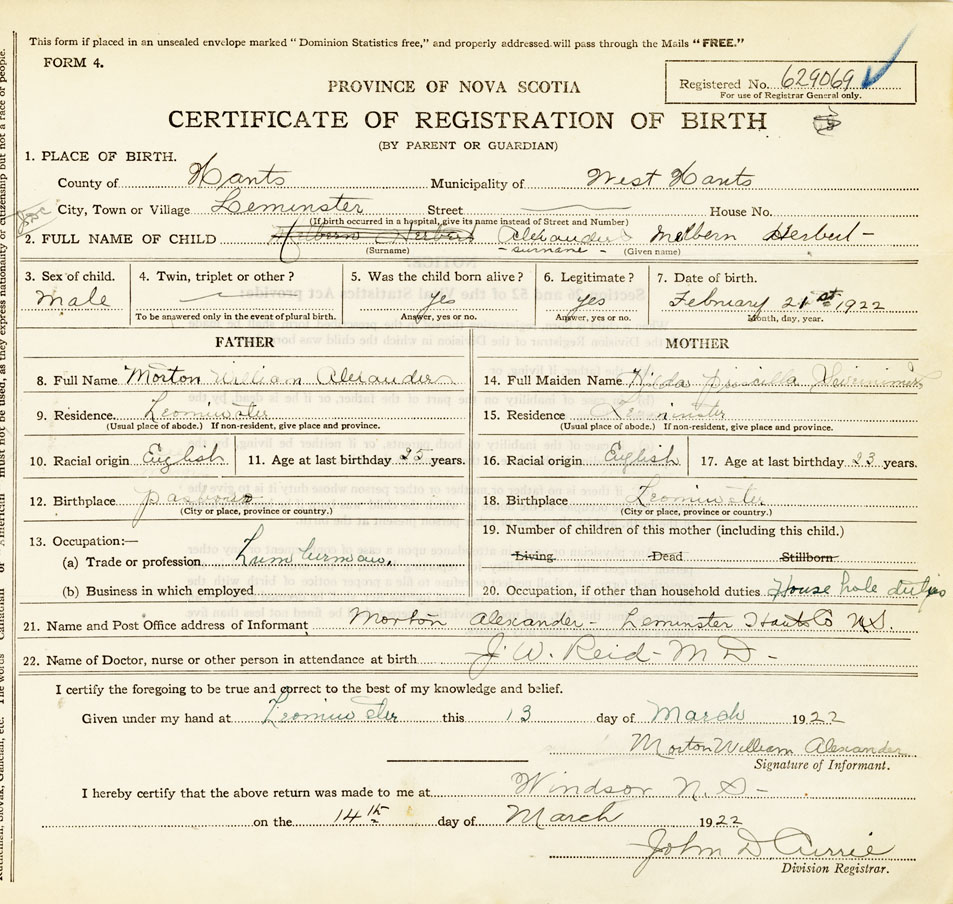 This form if placed in an unsealed envelope marked "Dominion Statistics free," and properly addressed will pass through the Mails "FREE."
FORM 4.
Registered No. 629069
For use of Registrar General only.
PROVINCE OF NOVA SCOTIA
CERTIFICATE OF REGISTRATION OF BIRTH
(BY PARENT OR GUARDIAN)
1. PLACE OF BIRTH.
County of Hants Municipality of West Hants
City, Town or Village Leminster Street House No.
(If birth occurred in a hospital, give its name instead of Street and Number)
2. FULL NAME OF CHILD Melbern Herbert Alexander Melbern Herbert -
(Surname) - surname - (Given name)
3. Sex of child. 4. Twin, triplet or other? 5. Was the child born alive? 6. Legitimate? 7. Date of birth.
Male yes yes February 21st 1922
To be answered only in the event of plural birth. Answer, yes or no. Answer, yes or no. Month, day, year.
FATHER MOTHER
8. Full Name Morton William Alexander 14. Full Maiden Name Hilda Priscilla
9. Residence Leominster 15. Residence Leminster
(Usual place of abode.) If non-resident, give place and province. (Usual place of abode.) If non-resident, give place and province.
10. Racial origin English 11. Age at last birthday 25 years. 16. Racial origin English 17. Age at last birthday 23 years.
12. Birthplace 18. Birthplace Leominster
(City or place, province or country.) (City or place, province or country.)
19. Number of children of this mother (including this child.)
13. Occupation:—
Living Dead Stillborn
(a) Trade or profession Lumberman.
(b) Business in which employed 20. Occupation, if other than household duties House hole duties
21. Name and Post Office address of Informant Morton Alexander - Leminster Hants Co N.S.
22. Name of Doctor, nurse or other person in attendance at birth J. W. Reid - M D -
I certify the foregoing to be true and correct to the best of my knowledge and belief.
Given under my hand at Leominster this 13 day of March 1922
Morton William Alexander
Signature of Informant.
I hereby certify that the above return was made to me at Windsor N. S -
on the 14th day of March 1922
John D Currie
Division Registrar.